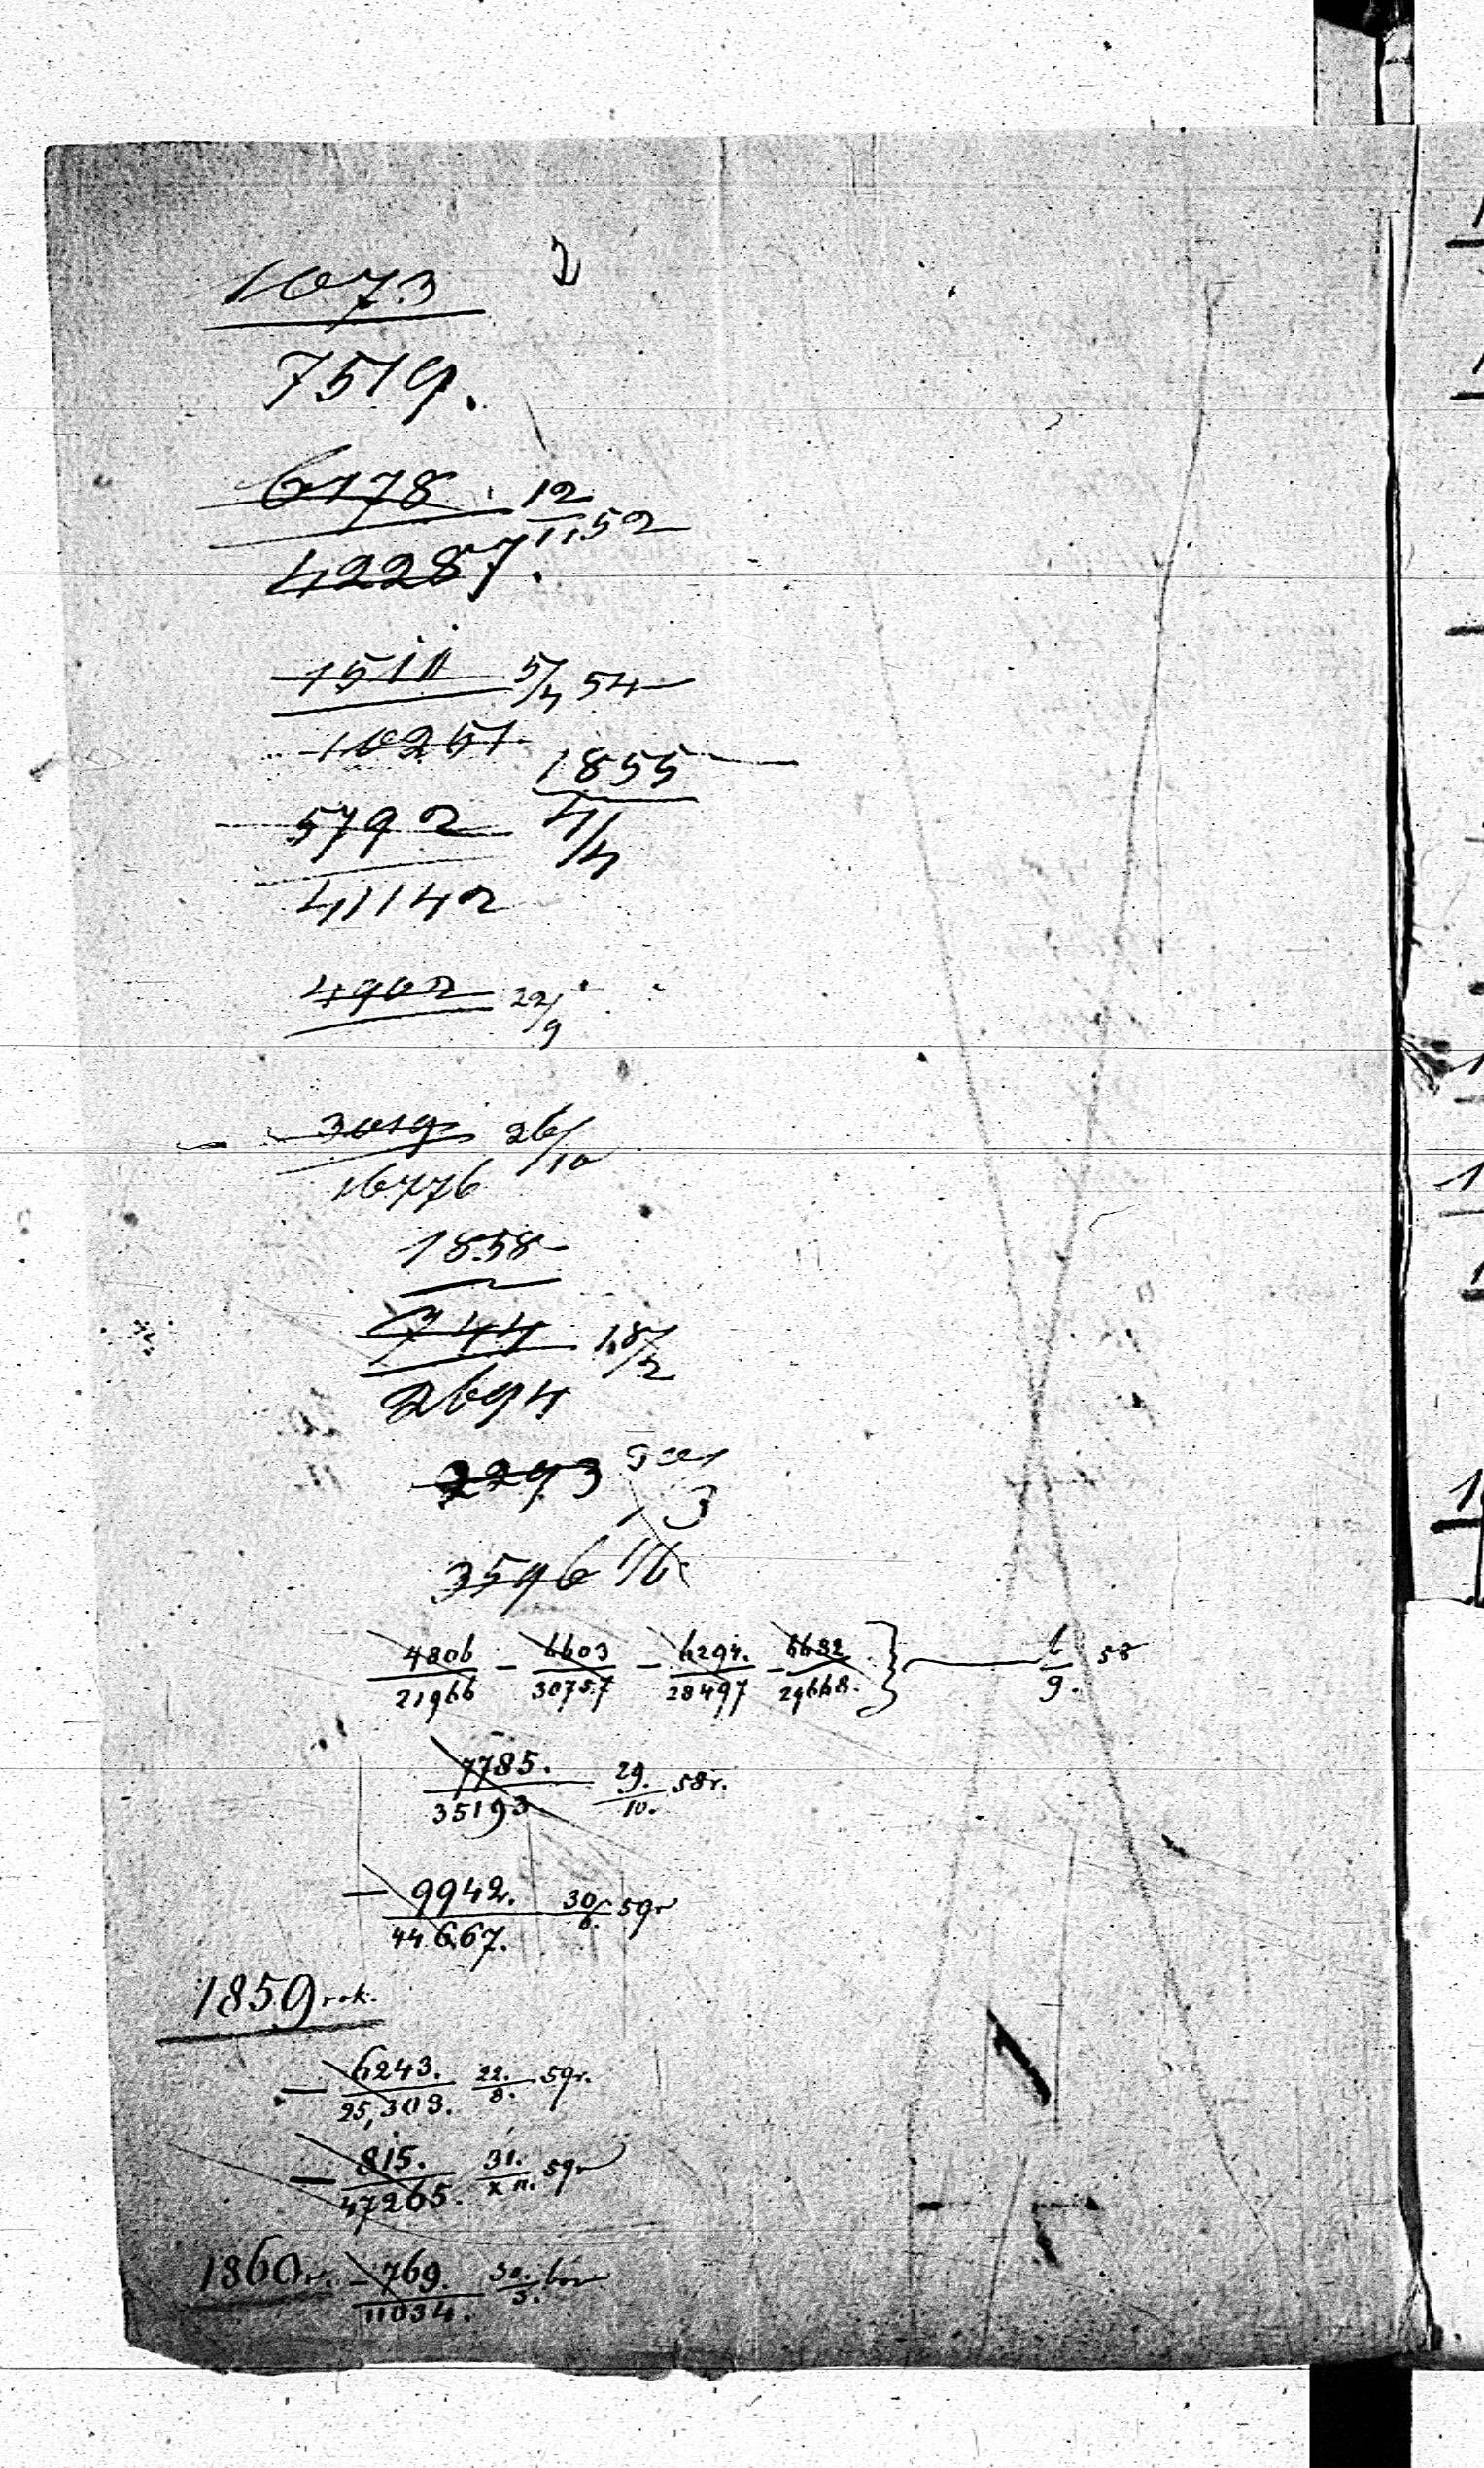 1073
7519.
6178 12/11 52
42287.
1511 5/4 54
10251
1855
5792 4/4
41142
4902 22/9
3019 26/10
16776
1858
744 18/2
2694
2293
3
3596 16
4806/21966 - 6603/30757 - 6294./28497 - 6632/29668. } 6/9. 58
7785./35193 29./10. 58r.
— 9942./44667. 30/6. 59r
1859 rok.
— 6243./25,309. 22./8. 59r.
— 815./47265. 31./X II. 59r
1860 r. — 769./11034. 30./3. 60r